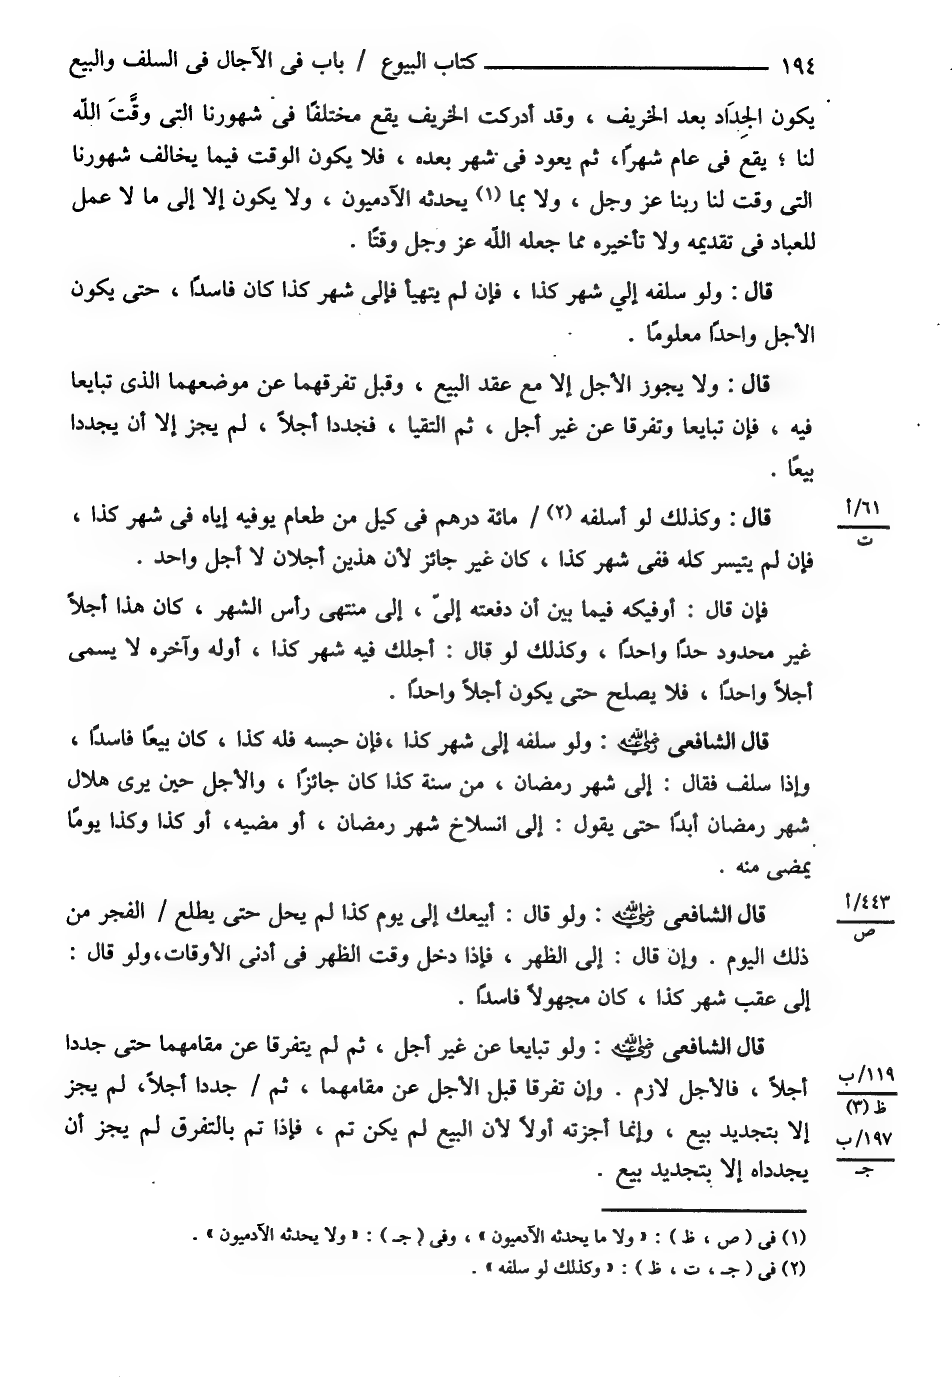 ١٩٤ ــــــــــــــــ كتاب البيوع / باب فى الآجال فى السلف والبيع
يكون الجِدَاد بعد الخريف ، وقد أدركت الخريف يقع مختلفًا فى شهورنا التى وقَّتَ اللّه
لنا ؛ يقع فى عام شهرًا، ثم يعود فى شهر بعده ، فلا يكون الوقت فيما يخالف شهورنا
التى وقت لنا ربنا عز وجل ، ولا بما (١) يحدثه الآدميون ، ولا يكون إلا إلى ما لا عمل
للعباد فى تقديمه ولا تأخيره مما جعله اللّه عز وجل وقتًا .
قال : ولو سلفه إلي شهر كذا ، فإن لم يتهيأ فإلى شهر كذا كان فاسدًا ، حتى يكون
الأجل واحدًا معلومًا .
قال : ولا يجوز الأجل إلا مع عقد البيع ، وقبل تفرقهما عن موضعهما الذى تبايعا
فيه ، فإن تبايعا وتفرقا عن غير أجل ، ثم التقيا ، فجددا أجلاً ، لم يجز إلا أن يجددا
بيعًا .
قال : وكذلك لو أسلفه (٢) / مائة درهم فى كيل من طعام يوفيه إياه فى شهر كذا ،
٦١/أ
ت
فإن لم يتيسر كله ففى شهر كذا ، كان غير جائز لأن هذين أجلان لا أجل واحد .
فإن قال : أوفيكه فيما بين أن دفعته إلىّ ، إلى منتهى رأس الشهر ، كان هذا أجلاً
غير محدود حدًا واحدًا ، وكذلك لو قال : أجلك فيه شهر كذا ، أوله وآخره لا يسمى
أجلاً واحدًا ، فلا يصلح حتى يكون أجلاً واحدًا .
قال الشافعى رضي الله عنه : ولو سلفه إلى شهر كذا ،فإن حبسه فله كذا ، كان بيعًا فاسدًا ،
وإذا سلف فقال : إلى شهر رمضان ، من سنة كذا كان جائزًا ، والأجل حين يرى هلال
شهر رمضان أبدًا حتى يقول : إلى انسلاخ شهر رمضان ، أو مضيه، أو كذا وكذا يومًا
يمضى منه .
قال الشافعى رضي الله عنه : ولو قال : أبيعك إلى يوم كذا لم يحل حتى يطلع / الفجر من
٤٤٣/أ
ص
ذلك اليوم . وإن قال : إلى الظهر ، فإذا دخل وقت الظهر فى أدنى الأوقات،ولو قال :
إلى عقب شهر كذا ، كان مجهولاً فاسدًا .
قال الشافعى رضي الله عنه : ولو تبايعا عن غير أجل ، ثم لم يتفرقا عن مقامهما حتى جددا
أجلاً ، فالأجل لازم . وإن تفرقا قبل الأجل عن مقامهما ، ثم / جددا أجلاً، لم يجز
١١٩/ب
ظ (٣)
إلا بتجديد بيع ، وإنما أجزته أولاً لأن البيع لم يكن تم ، فإذا تم بالتفرق لم يجز أن
١٩٧/ب
جـ
يجدداه إلا بتجديد بيع .
(١) فى ( ص ، ظ ) : « ولا ما يحدثه الآدميون » ، وفى ( جـ ) : « ولا يحدثه الآدميون » .
(٢) فى ( جـ ، ت ، ظ ) : « وكذلك لو سلفه » .